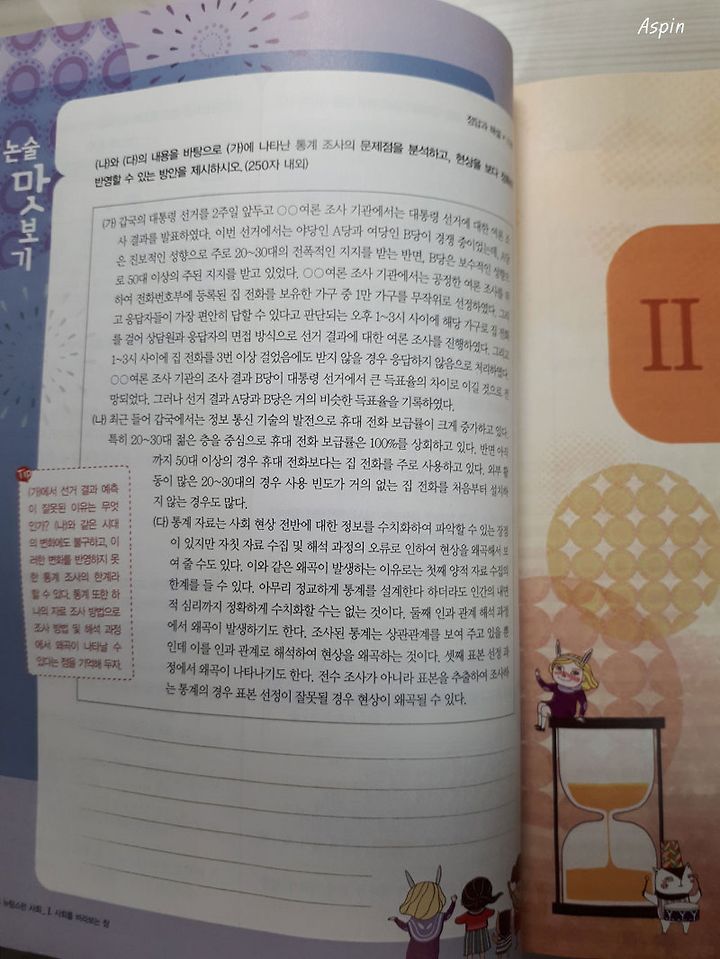 Aspin
논술
맛
보
기
정답과 해설
(나)와 (다)의 내용을 바탕으로 (가)에 나타난 통계 조사의 문제점을 분석하고, 현상을 보다
반영할 수 있는 방안을 제시하시오. (250자 내외)
(가) 갑국의 대통령 선거를 2주일 앞두고 ○○여론 조사 기관에서는 대통령 선거에 대한 여론 조
사 결과를 발표하였다. 이번 선거에서는 야당인 A당과 여당인 B당이 경쟁 중이었는데, A당
은 진보적인 성향으로 주로 20~30대의 전폭적인 지지를 받는 반면, B당은 보수적인 성향으
로 50대 이상의 주된 지지를 받고 있었다. ○○여론 조사 기관에서는 공정한 여론 조사를 위
하여 전화번호부에 등록된 집 전화를 보유한 가구 중 1만 가구를 무작위로 선정하였다. 그리
고 응답자들이 가장 편안히 답할 수 있다고 판단되는 오후 1~3시 사이에 해당 가구로 집 전화
를 걸어 상담원과 응답자의 면접 방식으로 선거 결과에 대한 여론 조사를 진행하였다. 그리고
1~3시 사이에 집 전화를 3번 이상 걸었음에도 받지 않을 경우 응답하지 않음으로 처리하였다.
○○여론 조사 기관의 조사 결과 B당이 대통령 선거에서 큰 득표율의 차이로 이길 것으로 전
망되었다. 그러나 선거 결과 A당과 B당은 거의 비슷한 득표율을 기록하였다.
(나) 최근 들어 갑국에서는 정보 통신 기술의 발전으로 휴대 전화 보급률이 크게 증가하고 있다.
특히 20~30대 젊은 층을 중심으로 휴대 전화 보급률은 100%를 상회하고 있다. 반면 아직
까지 50대 이상의 경우 휴대 전화보다는 집 전화를 주로 사용하고 있다. 외부 활
동이 많은 20~30대의 경우 사용 빈도가 거의 없는 집 전화를 처음부터 설치하
지 않는 경우도 많다.
(다) 통계 자료는 사회 현상 전반에 대한 정보를 수치화하여 파악할 수 있는 장점
이 있지만 자칫 자료 수집 및 해석 과정의 오류로 인하여 현상을 왜곡해서 보
여 줄 수도 있다. 이와 같은 왜곡이 발생하는 이유로는 첫째 양적 자료 수집의
한계를 들 수 있다. 아무리 정교하게 통계를 설계한다 하더라도 인간의 내면
적 심리까지 정확하게 수치화할 수는 없는 것이다. 둘째 인과 관계 해석 과정
에서 왜곡이 발생하기도 한다. 조사된 통계는 상관관계를 보여 주고 있을 뿐
인데 이를 인과 관계로 해석하여 현상을 왜곡하는 것이다. 셋째 표본 선정 과
정에서 왜곡이 나타나기도 한다. 전수 조사가 아니라 표본을 추출하여 조사하
는 통계의 경우 표본 선정이 잘못될 경우 현상이 왜곡될 수 있다.
TIP
(가)에서 선거 결과 예측
이 잘못된 이유는 무엇
인가? (나)와 같은 시대
의 변화에도 불구하고, 이
러한 변화를 반영하지 못
한 통계 조사의 한계라
할 수 있다. 통계 또한 하
나의 자료 조사 방법으로
조사 방법 및 해석 과정
에서 왜곡이 나타날 수
있다는 점을 기억해 두자.
뉴탐스런 사회_ Ⅰ. 사회를 바라보는 창
Ⅱ